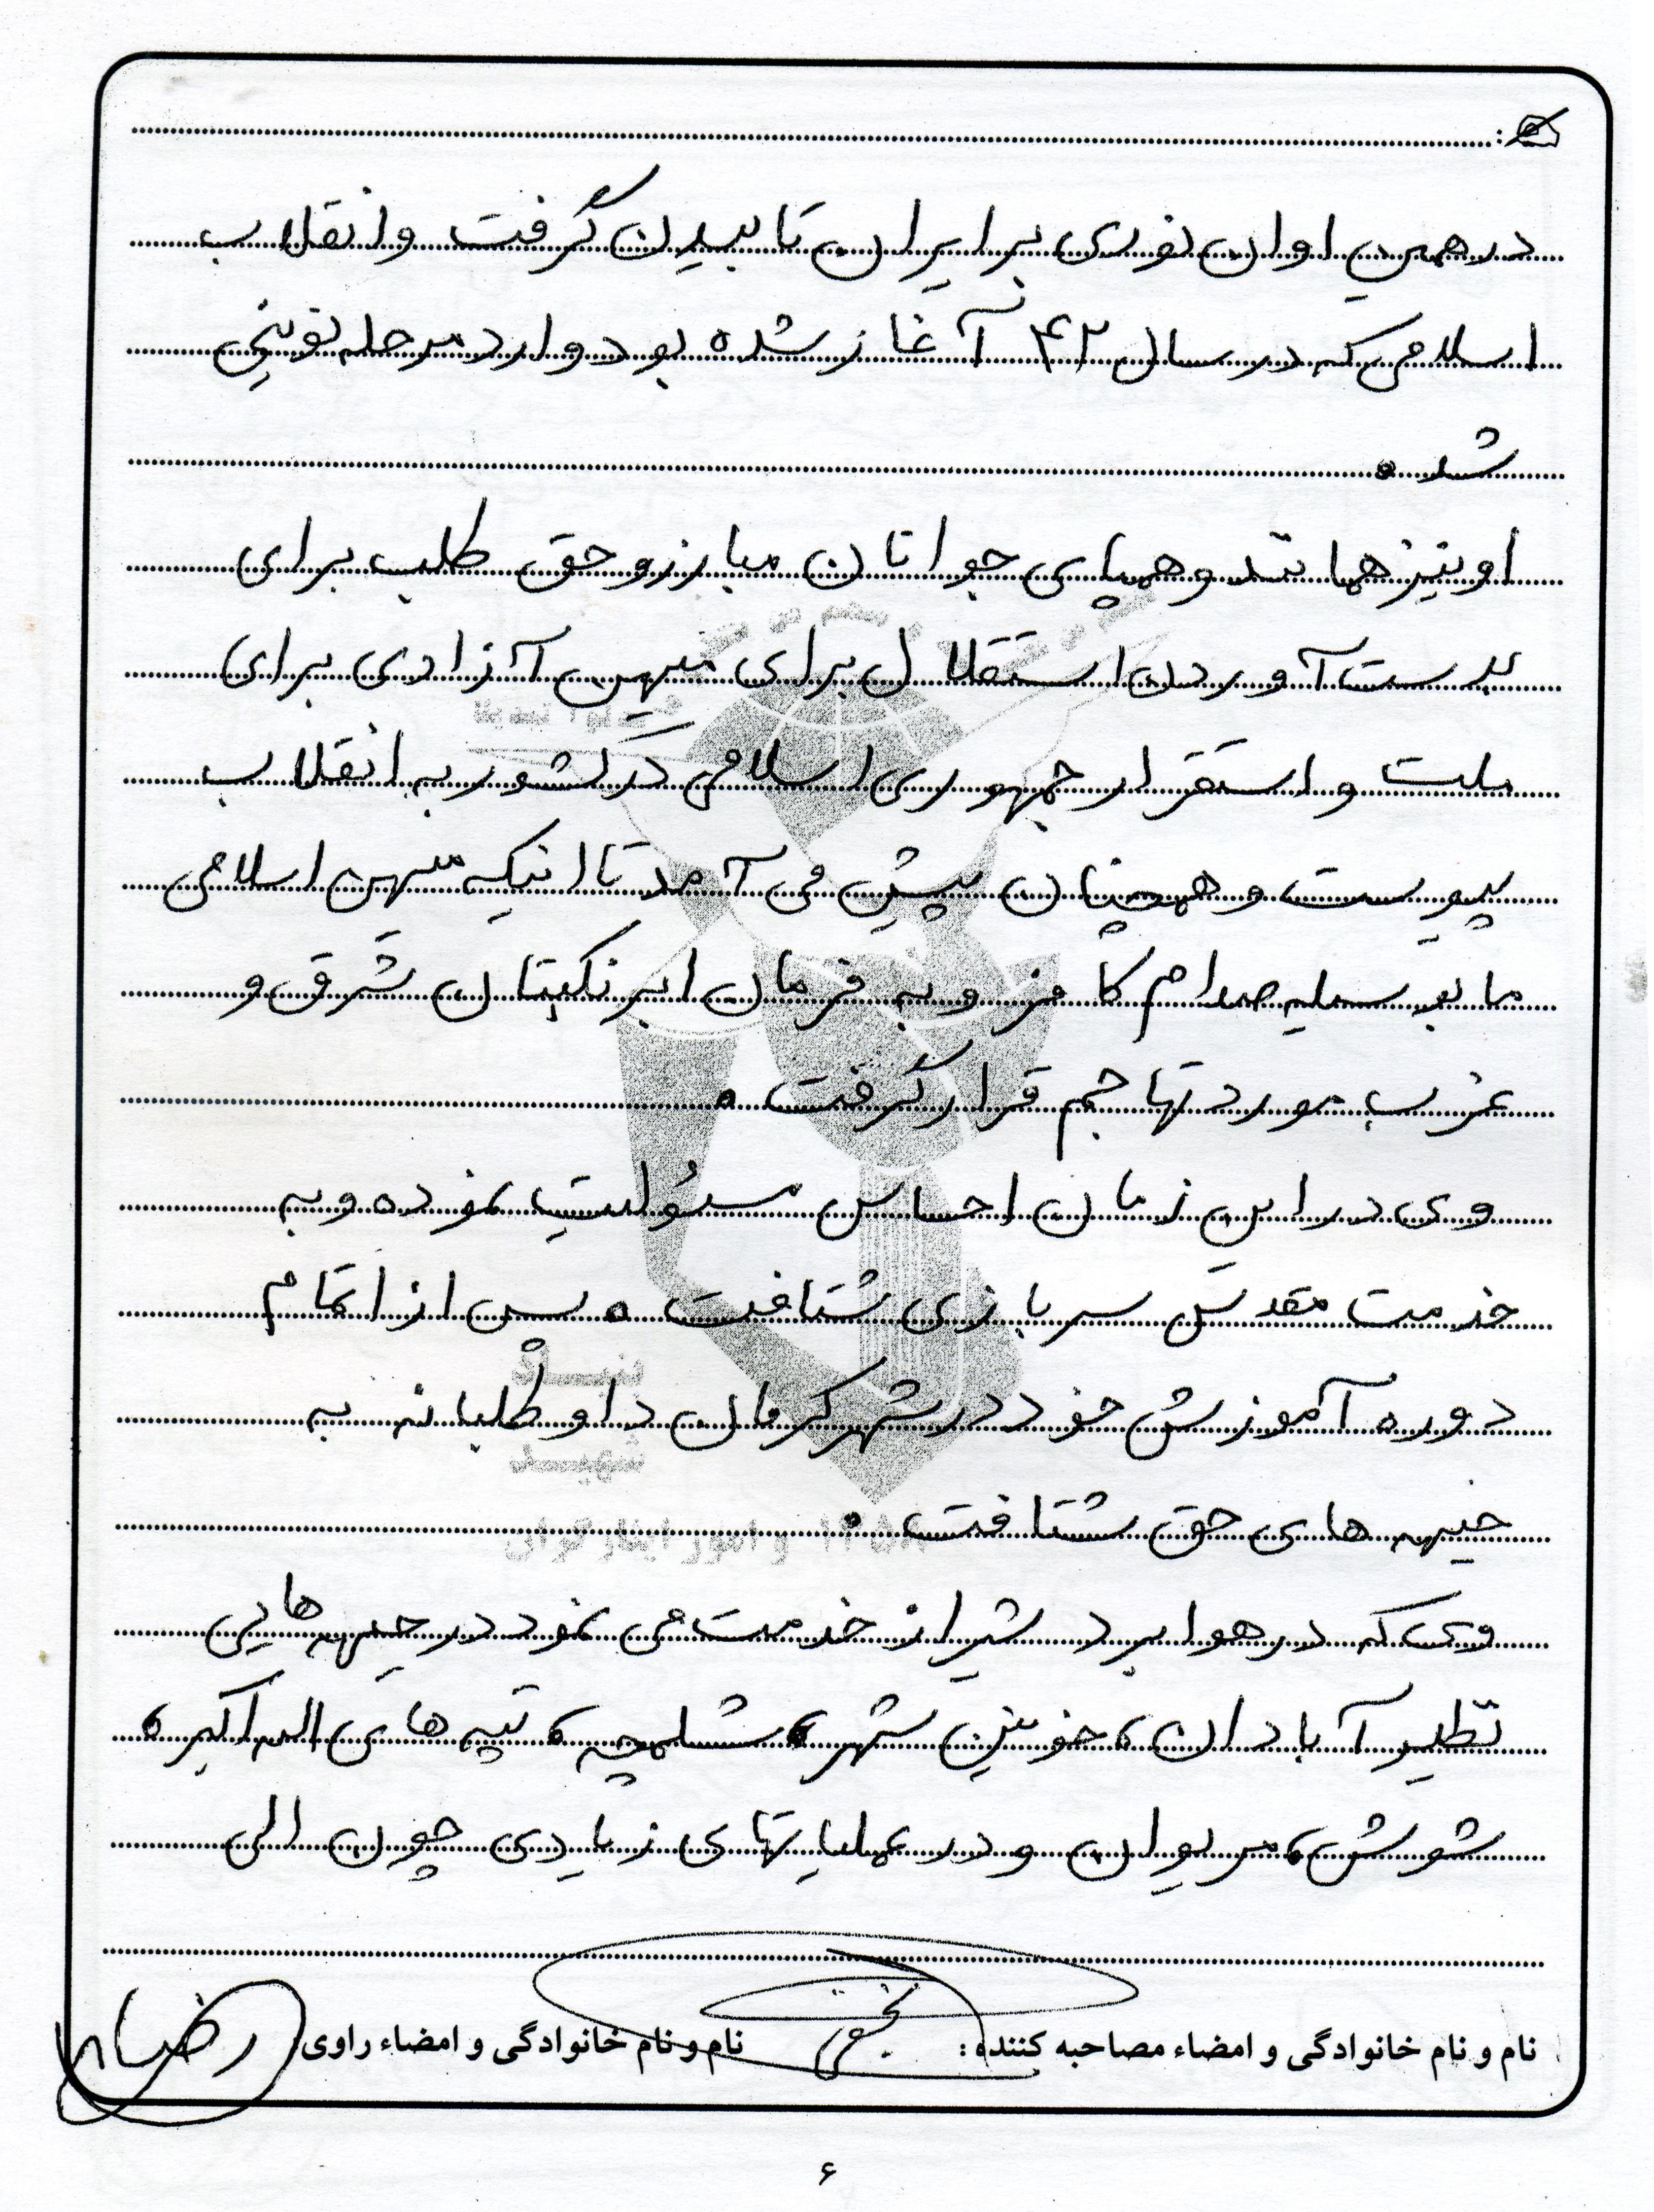 در همین اوان نوری بر ایران تابیدن گرفت و انقلاب
اسلامی که در سال ۴۲ آغاز شده بود وارد مرحله نوینی
شد.
او نیز همانند و همپای جوانان مبارز و حق طلب برای
بدست آوردن استقلال برای میهن آزادی برای
ملت و استقرار جمهوری اسلامی در کشور به انقلاب
پیوست و همچنان پیش می آمد تا اینکه میهن اسلامی
ما بوسیله صدام کافر و به فرمان ابرنکبتان شرق و
غرب مورد تهاجم قرار گرفت.
وی در این زمان احساس مسئولیت نموده و به
خدمت مقدس سربازی شتافت. پس از اتمام
دوره آموزش خود در شهر کرمان داوطلبانه به
جبهه های حق شتافت.
وی که در هوابرد شیراز خدمت می نمود در جبهه هایی
نظیر آبادان، خونین شهر، شلمچه، تپه های الله اکبر،
شوش، مریوان و در عملیاتهای زیادی چون الی
نام و نام خانوادگی و امضاء مصاحبه کننده: نام و نام خانوادگی و امضاء راوی
۶
بنیاد
شهید
و امور ایثارگران